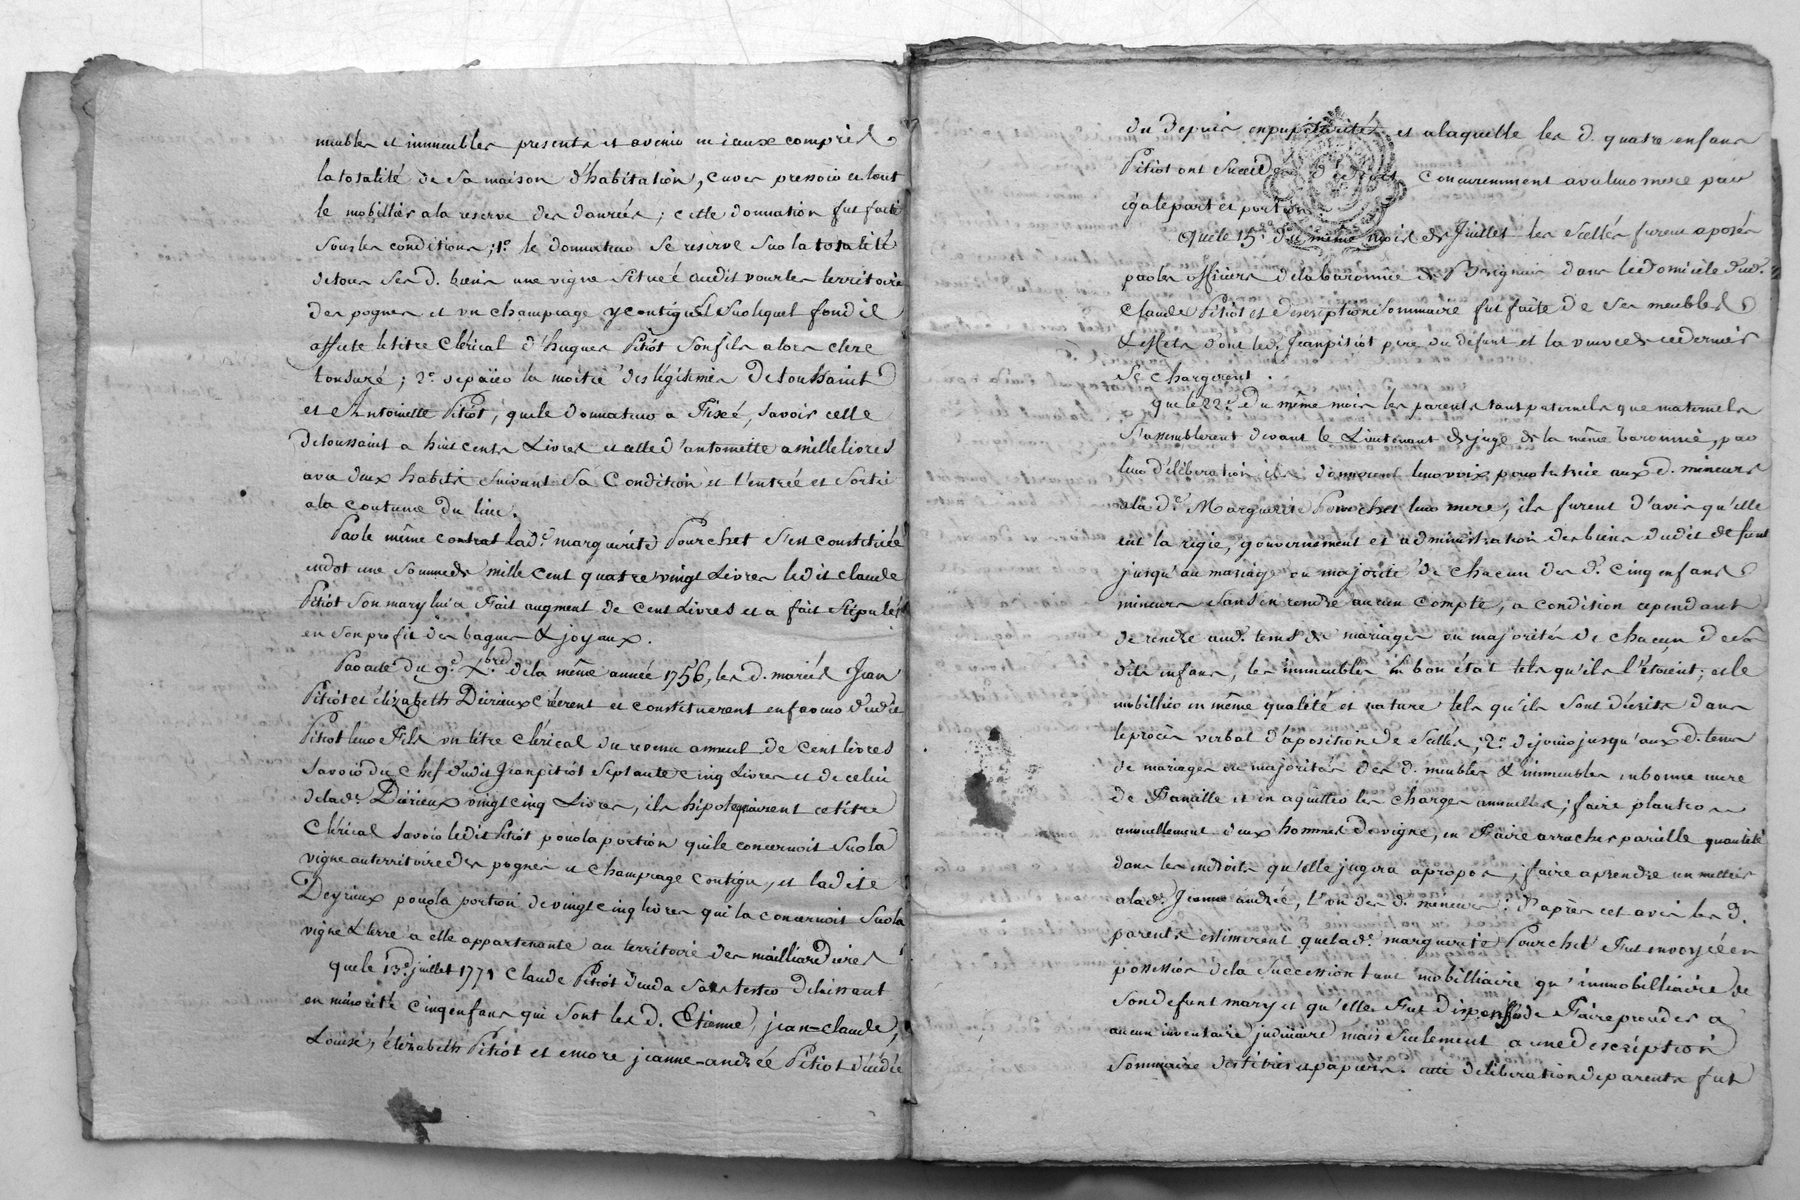 meubles et immeubles presents et avenir mieux compris
la totalité de sa maison d'habitation, cuves pressoir et tout
le mobillier a la reserve des danrées; cette donnation fut faite
sous les conditions; 1°. le donnateur se reserve sur la totalité
de tous ses d. biens une vigne située audit vourles territoire
des pognes et un champeage y contigu sur lequel fond il
affecte le titre clérical d'hugues Pitiot son fils alors clerc
tonsuré; 2°. de païer la moitié des légitimes de toussaint
et Antoinette Pitiot, que le donnateur a Fixé, savoir celle
de toussaint a huit cents Livres et celle d'antoinette a mille livres
avec deux habits suivant sa condition et l'entrée et sortie
a la coutume du lieu.
Par le même contrat lad.e marguerite Pourchet s'est constituée
en dot une somme de mille cent quatre vingt Livres ledit claude
Pitiot son mary lui a Fait augment de cent Livres et a fait stipuler
en son profit des bagues & joyaux.
Par acte du 9.e Xbre de la même année 1756, les d. mariés Jean
Pitiot et élizabeth Deirieux créerent et constituerent en faveur dudit
Pitiot leur Fils un titre clérical du revenu annuel de cent livres
savoir du chef dudit Jean pitiot septante cinq Livres et de celui
de la de. Deirieux vingt cinq Livres, ils hipotequerent ce titre
clérical savoir ledit Pitiot pour la portion qui le concernoit sur la
vigne au territoire des pognes et champeage contigu, et ladite
Deyrieux pour la portion de vingt cinq livres qui la concernoit sur la
vigne & terre a elle appartenante au territoire des mailliardieres
que le 13.e juillet 1771 claude Pitiot déceda sans tester delaissant
en minorité cinq enfans qui sont les d. Etienne, jean-claude,
Louise, élizabeth Pitiot et encore jeanne-andrée Pitiot décédée
du depuis en pupilarité et a laquelle les d. quatre enfans
Pitiot ont succedé concuremment avec leur mere par
égale part et portion
Que le 15.e du même mois de Juillet les scellés furent aposés
par les officiers de la baronnie de Brignais dans le domicile dud.
claude Pitiot et description sommaire fut faite de ses meubles
& effets dont led. Jean pitiot pere du defunt et la veuve de ce dernier
se chargerent.
que le 22.e du même mois les parents tant paternels que maternels
s'assemblerent devant le Lieutenant de juge de la même baronnie, par
leur délibération ils donnerent leur voix pour tutrice aux d. mineurs
a la de. Marguerite Pourchet leur mere, ils furent d'avis qu'elle
eut la régie, gouvernement et administration des biens dudit défunt
jusqu'au mariage ou majorité de chacun des d. cinq enfans
mineurs sans en rendre aucun compte, a condition cependant
de rendre aud. tems de mariages ou majorités de chacun des
dits enfans, les immeubles en bon état tels qu'ils l'étoient; et le
mobillier en même qualité et nature tels qu'ils sont décrits dans
le procès verbal d'aposition de scellés; 2°. de jouir jusqu'aux d. tems
de mariages ou majorités des d. meubles & immeubles en bonne mere
de Famille et en aquitter les charges annuelles; faire planter
annuellement deux hommes de vigne, en Faire arracher pareille quantité
dans les endroits qu'elle jugera apropos; faire aprendre un mettier
a lade. Jeanne andrée, l'un des d. mineurs. D'après cet avis les d.
parents estimerent que lade. marguerite Pourchet Fut envoyée en
possession de la succession tant mobilliaire qu'immobilliaire de
son defunt mary et qu'elle Fut dispensée de Faire proceder a
aucun inventaire judiciaire mais seulement a une description
sommaire des titres et papiers. cette deliberation de parents fut